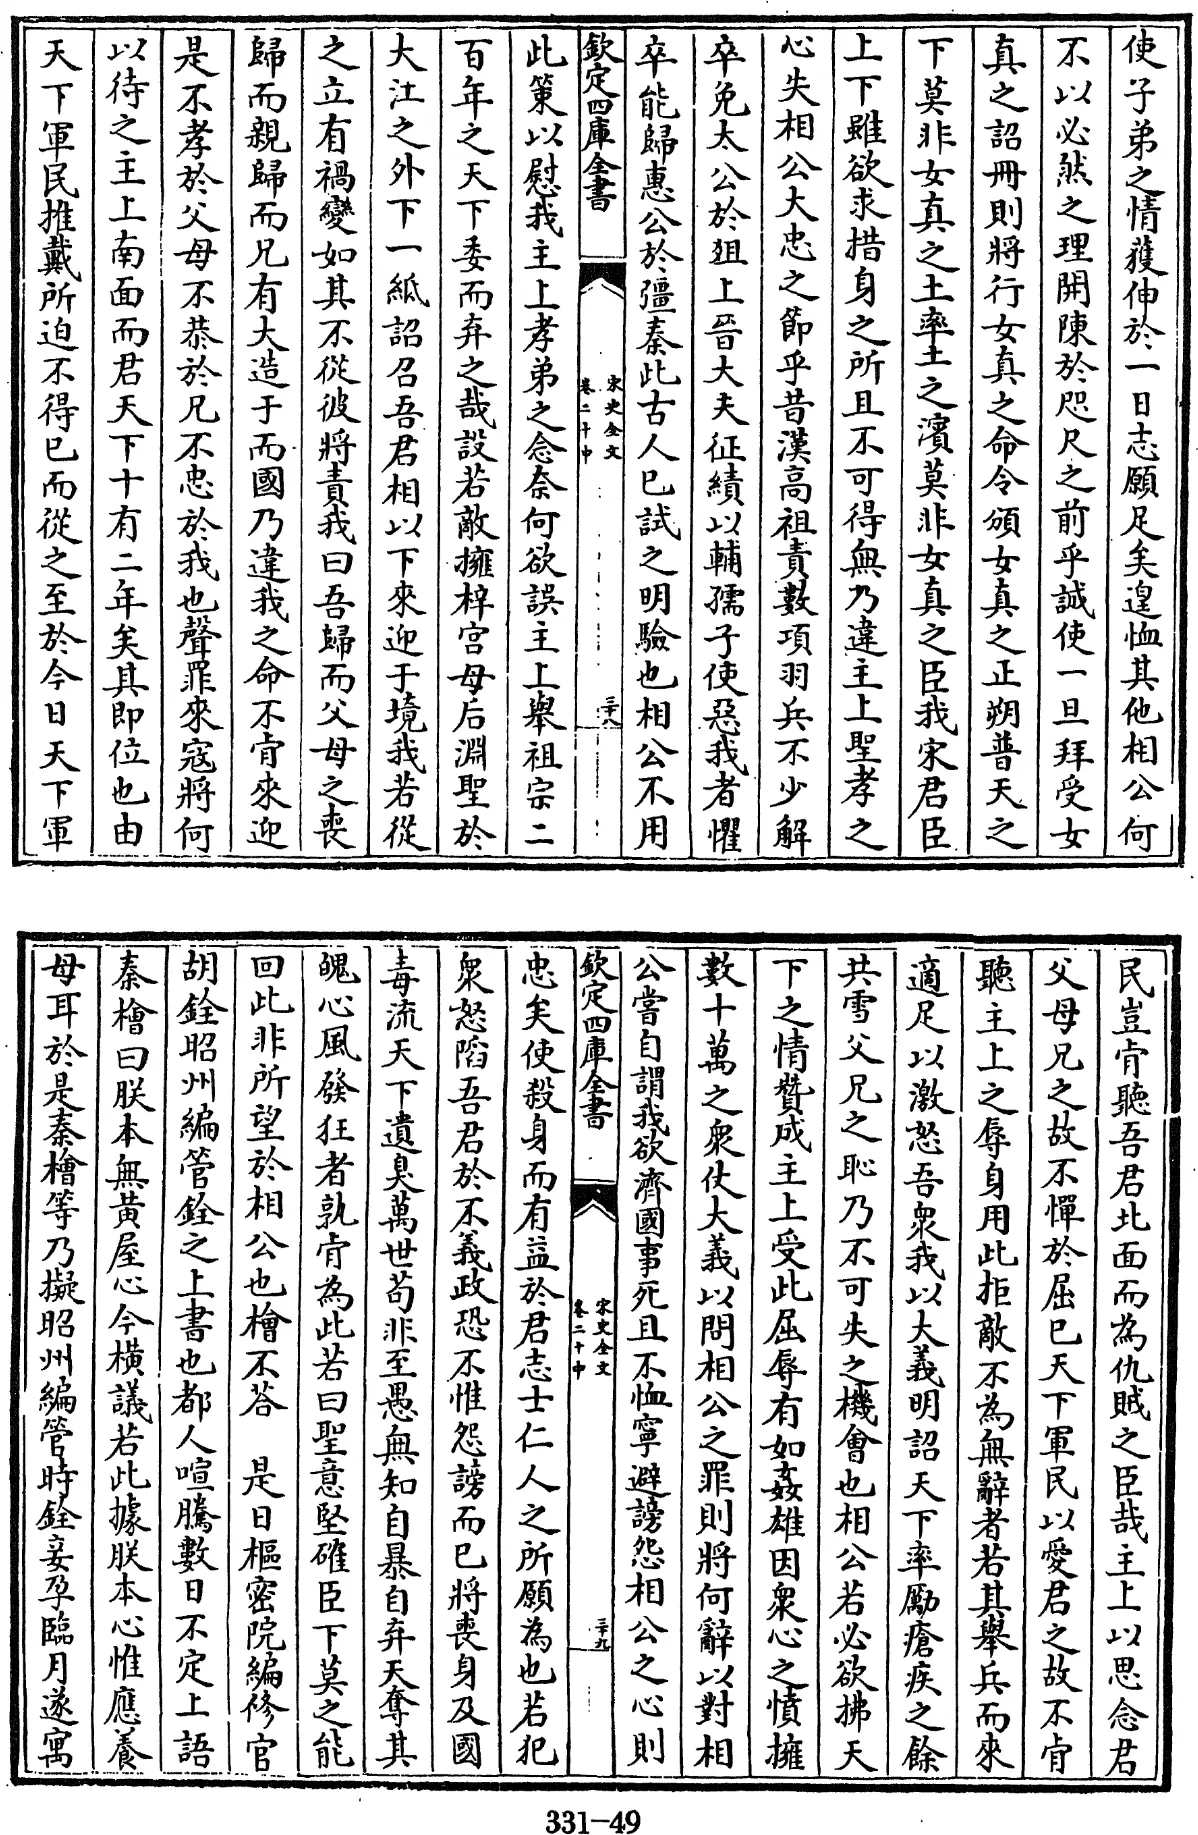 使子弟之情獲伸於一日志願足矣遑恤其他相公何
不以必然之理開陳於咫尺之前乎誠使一旦拜受女
真之詔冊則將行女真之命令頒女真之正朔普天之
下莫非女真之土率土之濱莫非女真之臣我宋君臣
上下雖欲求措身之所且不可得無乃違主上聖孝之
心失相公大忠之節乎昔漢高祖責數項羽兵不少解
卒免太公於狙上晉大夫征繕以輔孺子使惡我者懼
卒能歸惠公於彊秦此古人已試之明驗也相公不用
欽定四庫全書
宋史全文
卷二十中
三十八
此策以慰我主上孝弟之念奈何欲誤主上舉祖宗二
百年之天下委而弃之哉設若敵擁梓宮母后淵聖於
大江之外下一紙詔召吾君相以下來迎于境我若從
之立有禍變如其不從彼將責我曰吾歸而父母之喪
歸而親歸而兄有大造于而國乃違我之命不肯來迎
是不孝於父母不恭於兄不忠於我也聲罪來寇將何
以待之主上南面而君天下十有二年矣其即位也由
天下軍民推戴所迫不得已而從之至於今日天下軍
民豈肯聽吾君北面而為仇賊之臣哉主上以思念君
父母兄之故不憚於屈已天下軍民以愛君之故不肯
聽主上之辱身用此拒敵不為無辭者若其舉兵而來
適足以激怒吾衆我以大義明詔天下率勵瘡疾之餘
共雪父兄之恥乃不可失之機會也相公若必欲拂天
下之情贊成主上受此屈辱有如姦雄因衆心之憤擁
數十萬之衆仗大義以問相公之罪則將何辭以對相
公當自謂我欲濟國事死且不恤寧避謗怨相公之心則
欽定四庫全書
宋史全文
卷二十中
三十九
忠矣使殺身而有益於君志士仁人之所願為也若犯
衆怒陷吾君於不義政恐不惟怨謗而已將喪身及國
毒流天下遺臭萬世苟非至愚無知自暴自弃天奪其
魄心風發狂者孰肯為此若曰聖意堅確臣下莫之能
回此非所望於相公也檜不荅　是日樞密院編修官
胡銓昭州編管銓之上書也都人喧騰數日不定上語
秦檜曰朕本無黃屋心今橫議若此據朕本心惟應養
母耳於是秦檜等乃擬昭州編管時銓妾孕臨月遂寓
331-49